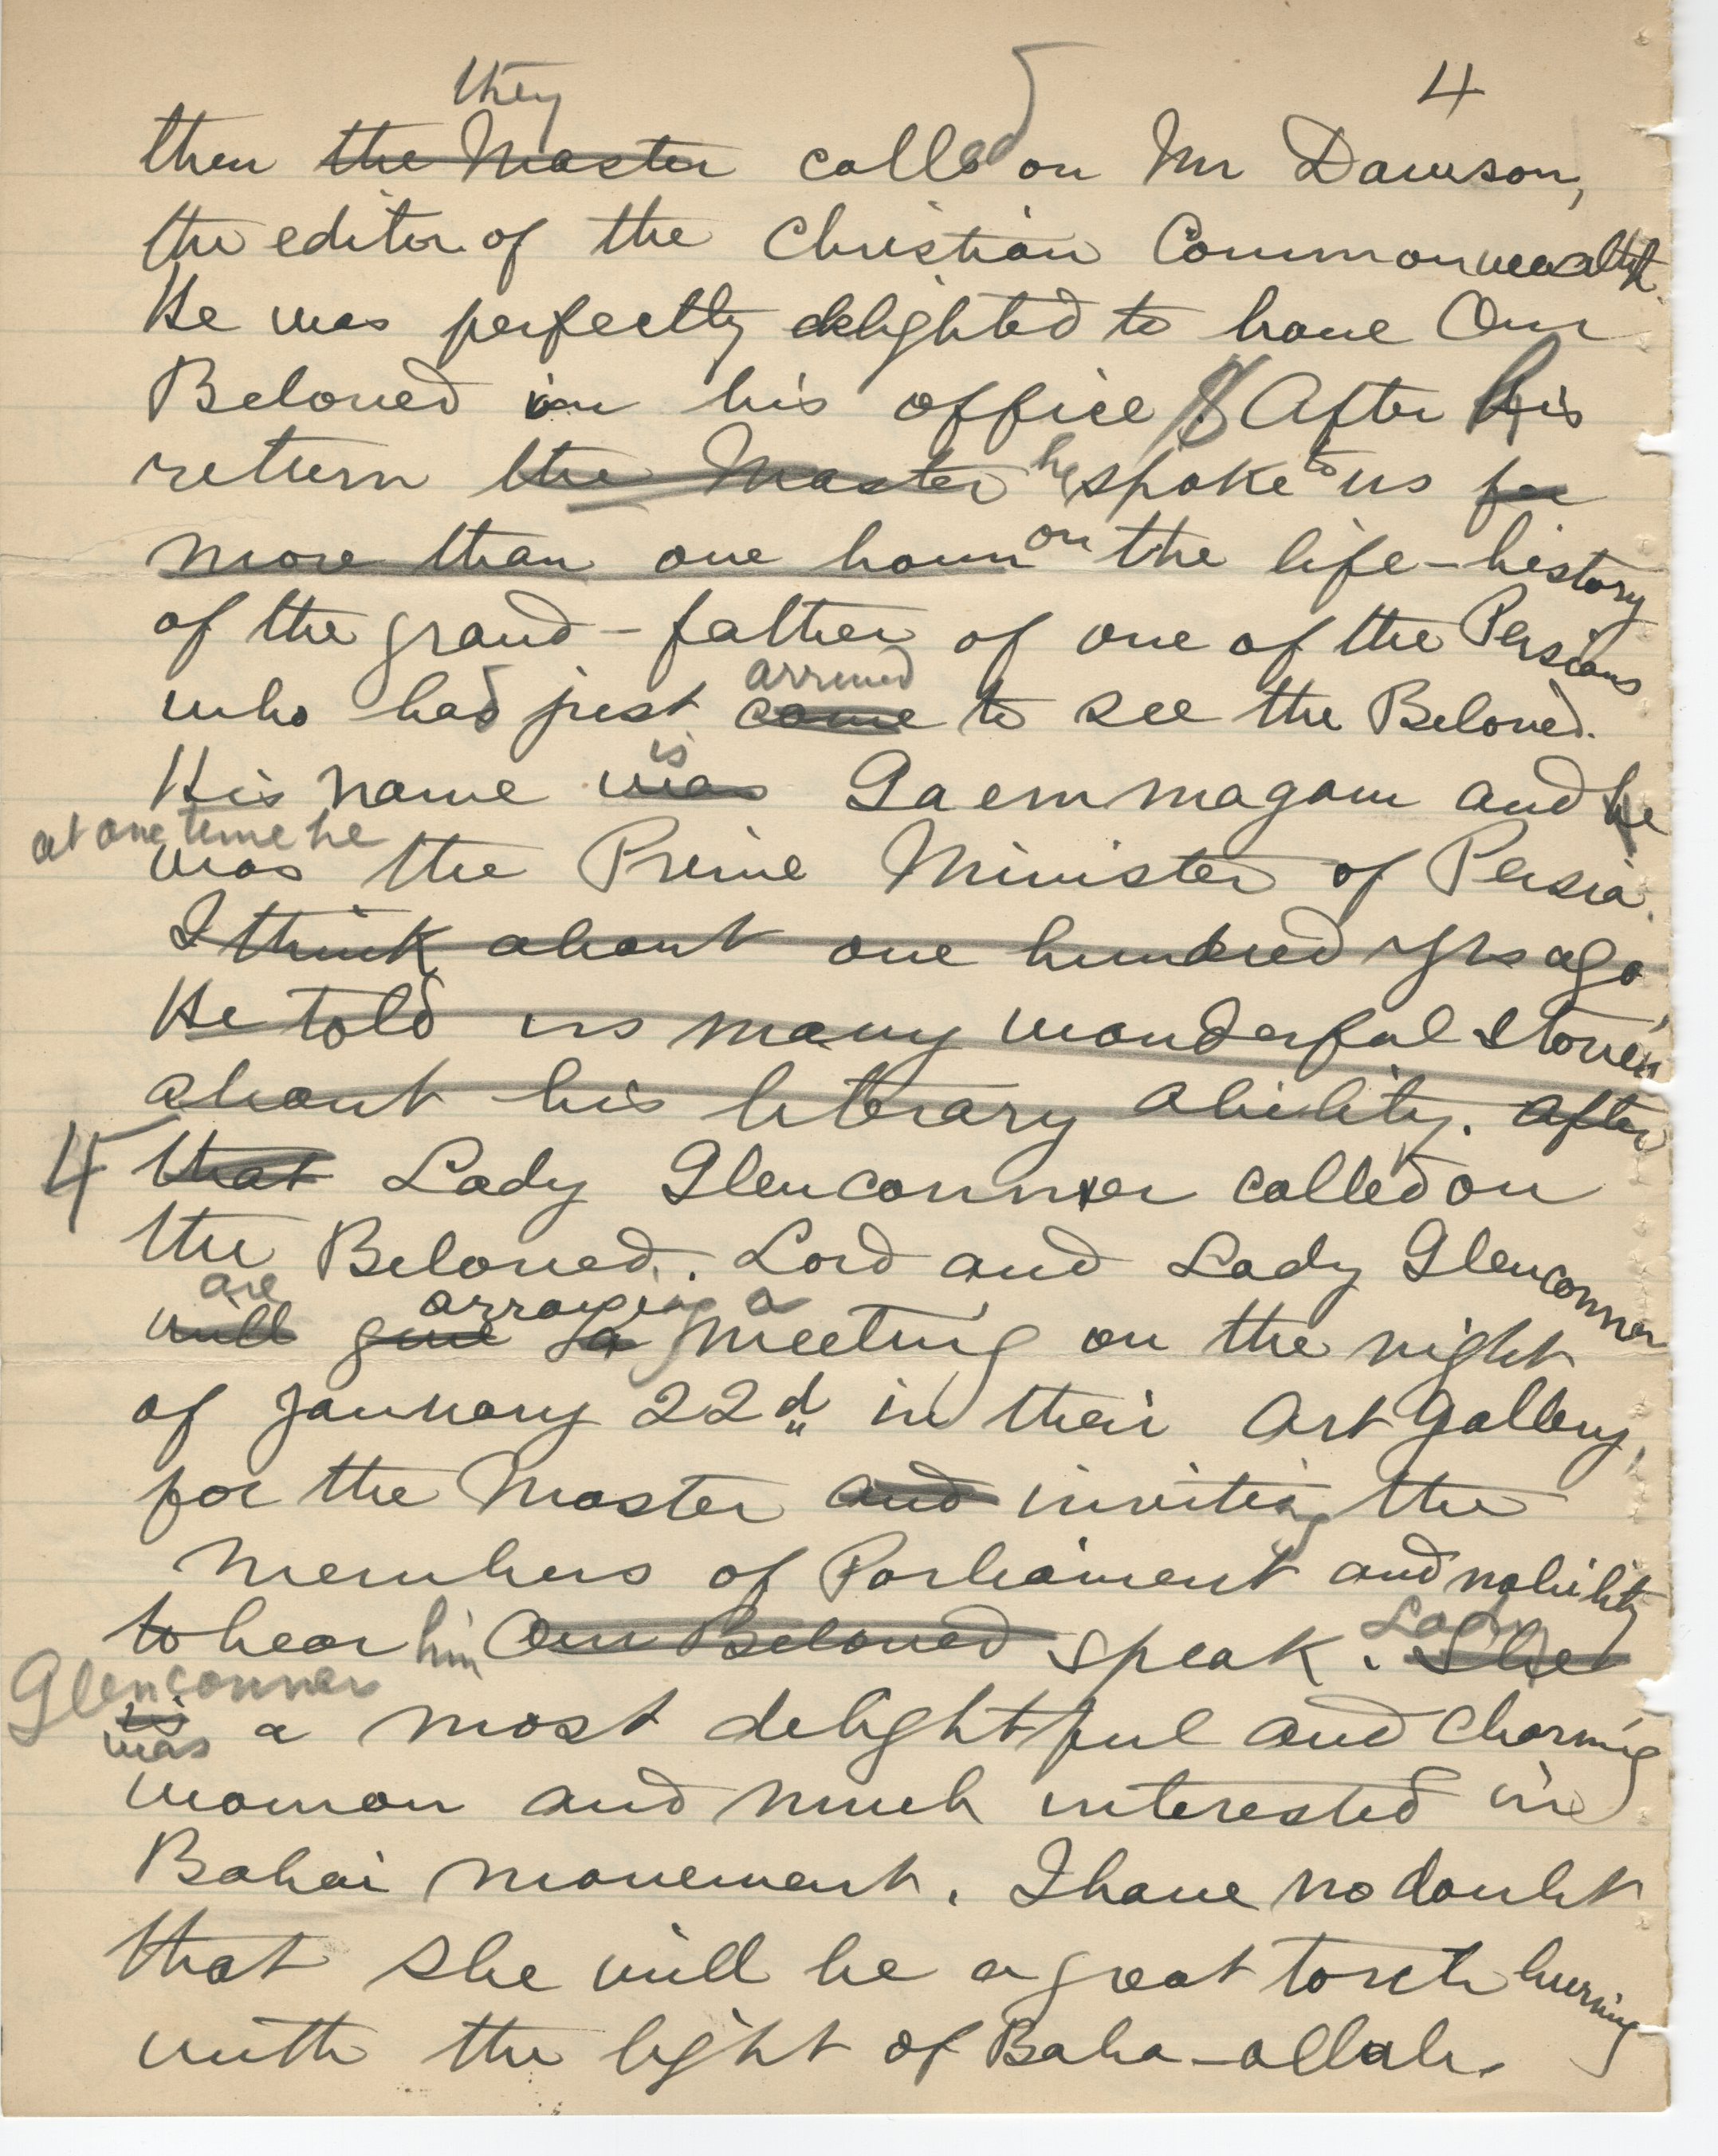 4
they
then the Master called on Mr Dawson,
the editor of the Christian Commonwealth.
He was perfectly delighted to have Our
Beloved in his office. After His
return the Master he spoke to us for
more than one hour on the life-history
of the grand-father of one of the Persians
arrived
who had just come to see the Beloved.
is
His name was Gaemmagam and he
at one time he
was the Prime Minister of Persia.
I think about one hundred yrs ago
He told us many wonderful stories
about his literary ability. After
that Lady Glenconner called on
the Beloved. Lord and Lady Glenconner
are arranging a
will give a meeting on the night
of January 22d in their Art Gallery,
for the Master and inviting the
members of Parliament and nobility
Lady
to hear him Our Beloved speak. She
Glenconner
is a most delightful and charming
was
woman and much interested in
Bahai movement. I have no doubt
that she will be a great torch burning
with the light of Baha-ollah.